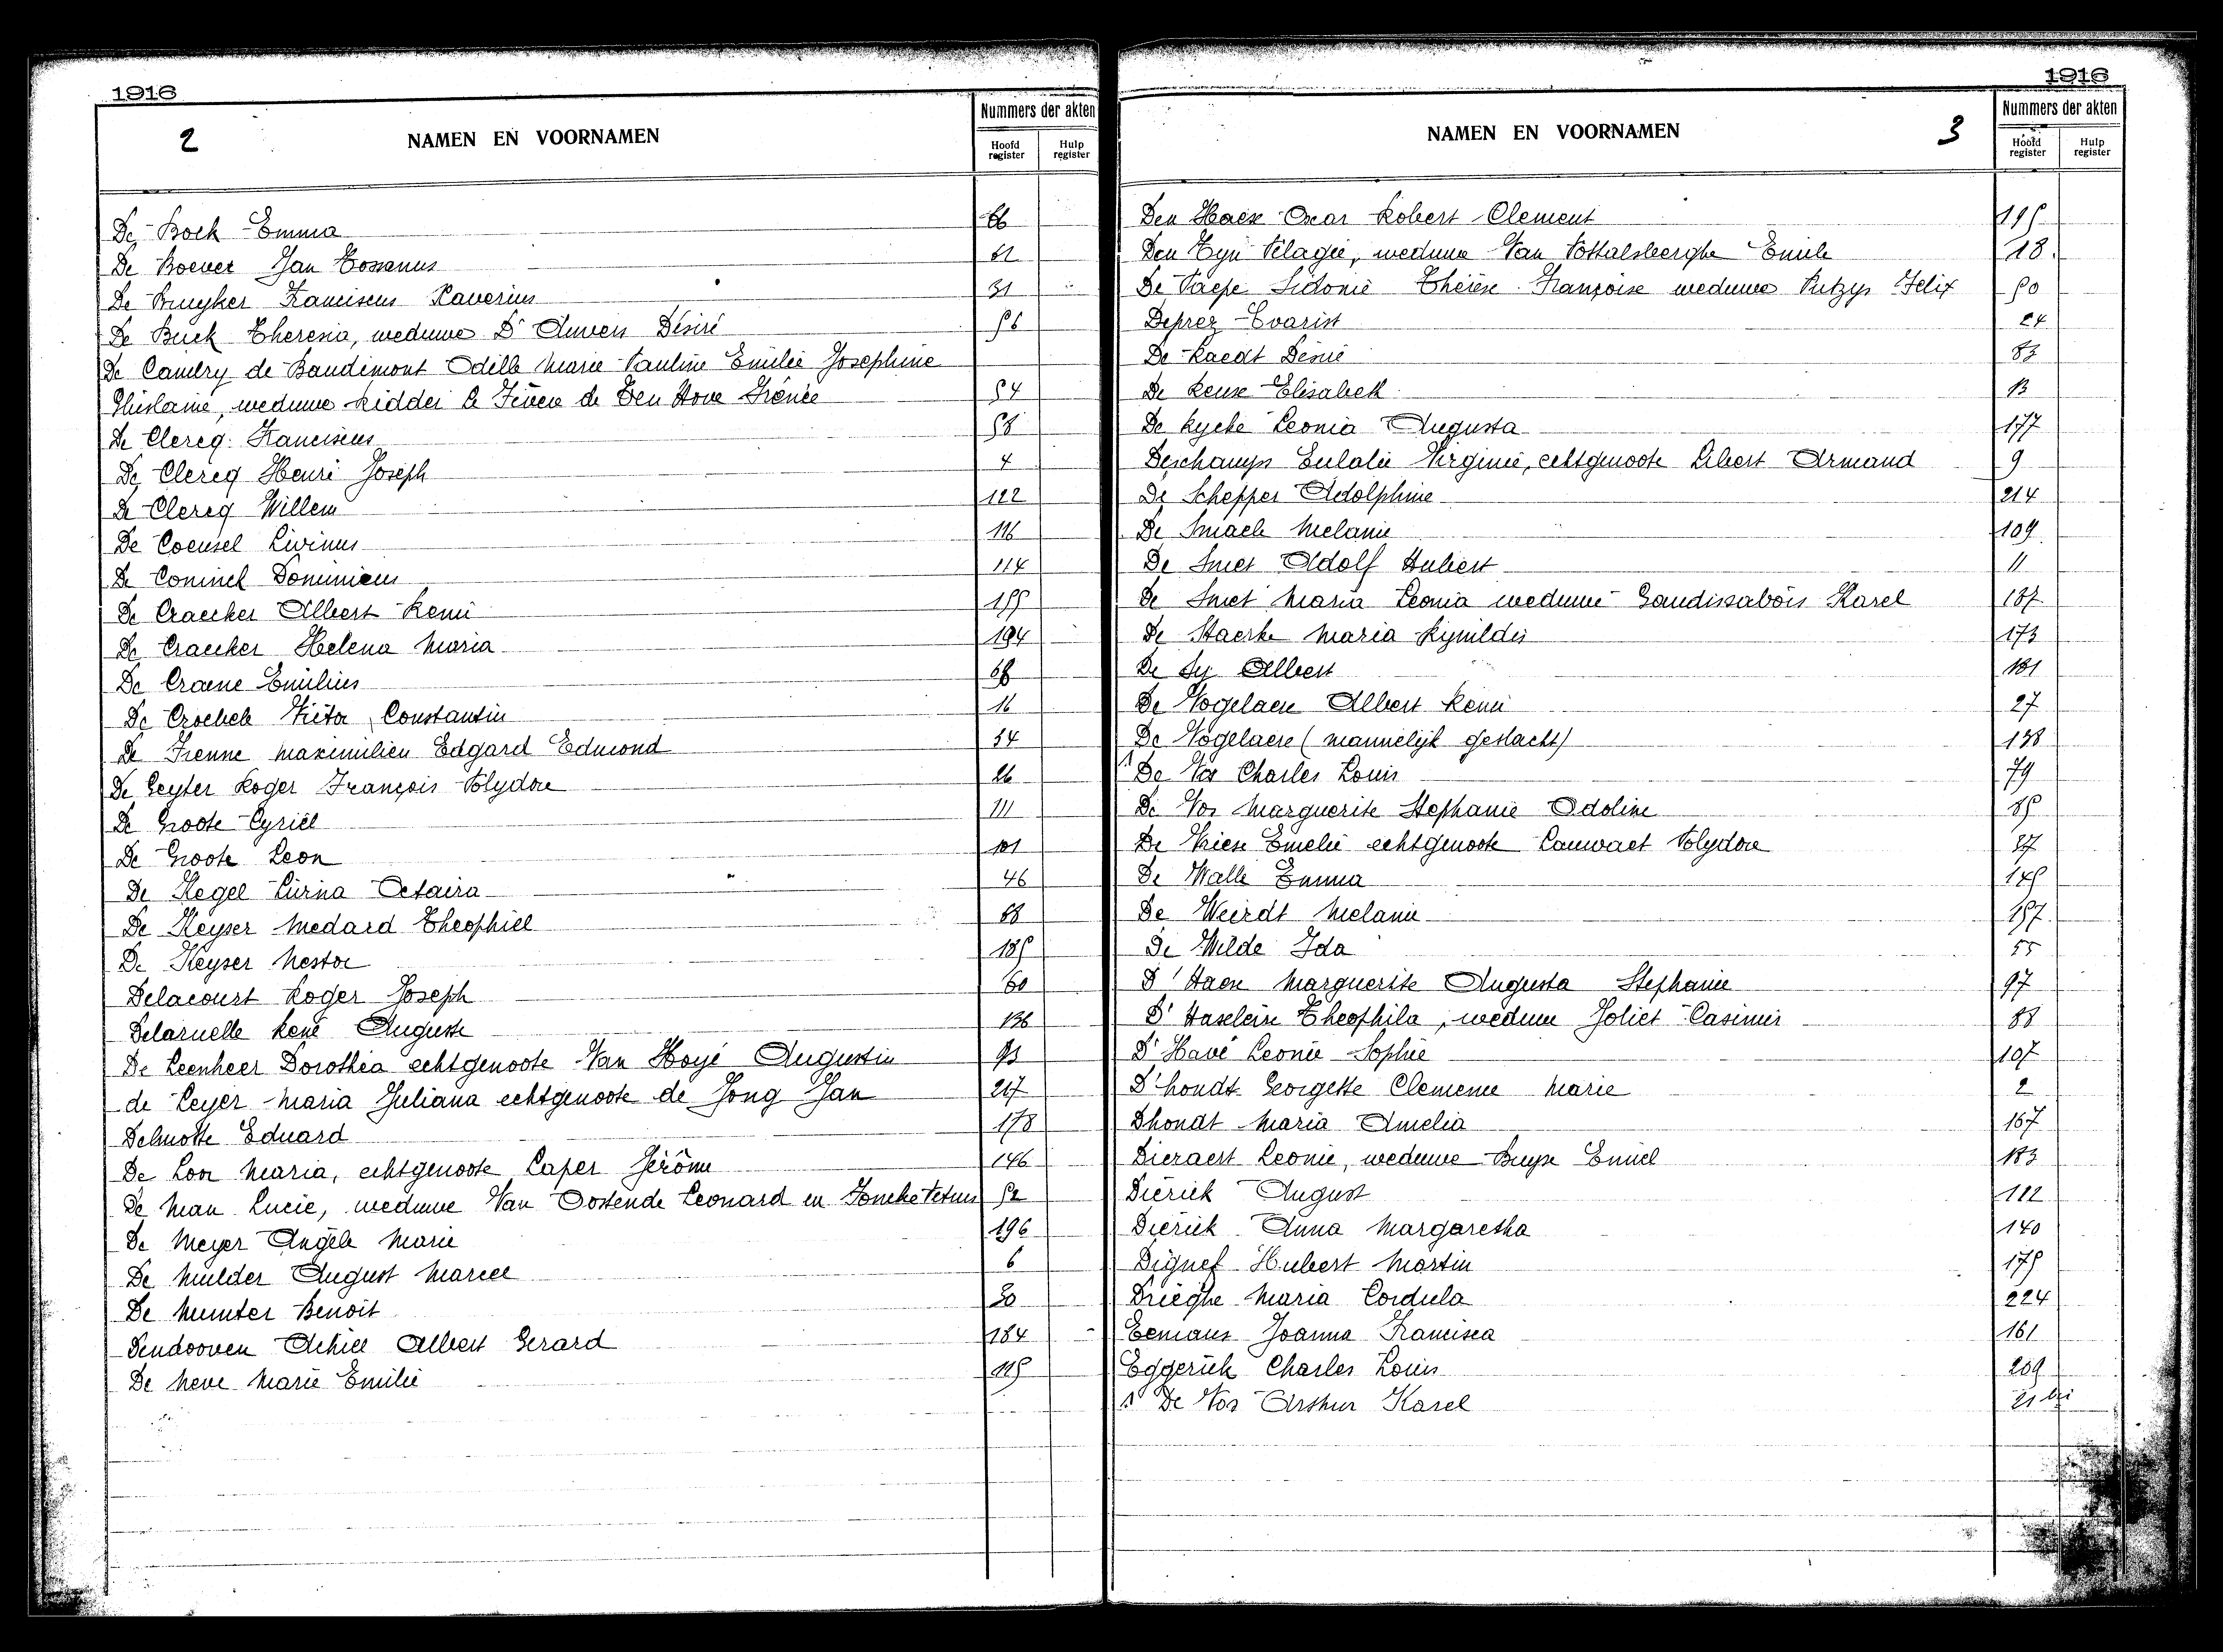 1916
2
NAMEN EN VOORNAMEN
Nummers der akten
Hoofd register
Hulp register
De Bock Emma 66
De Boever Jan 61
De Bruyker Franciscus Xaverius 31
De Buck Theresia, weduwe D' Anvers Désiré 56
De Candry de Baudimont Odille Marie Pauline Emilie Josephine
Ghislaine, weduwe Ridder de Ten Hove Irénée 54
De Clercq Franciscus 58
De Clercq Henri Joseph 4
De Clercq Willem 122
De Coensel Livinus 116
De Coninck Dominicus 114
De Craecker Albert Remi 155
De Craecker Helena Maria 194
De Craene Emilius 68
De Victor Constantin 16
De Frenne Maximilien Edgard Edmond 34
De Geyter Roger François Polydore 26
De Groote Cyriel 111
De Groote Leon 101
De Kegel Octaira 46
De Keyser Medard Theophiel 68
De Keyser Nestor 185
Delacourt Roger Joseph 60
Delaruelle René Auguste 136
De Leenheer Dorothea echtgenoote Van Hoyé Augustin 93
de Leyer Maria Juliana echtgenoote de Jong Jan 217
Delmotte Eduard 178
De Loor Maria, echtgenoote Caper Jérôme 146
De Man Lucie, weduwe Van Oostende Leonard en 52
De Meyer Angèle Marie 196
De Mulder August Marcel 6
De Munter Benoit 30
Dendooven Achiel Albert Gerard 184
De Neve Marie Emilie 115
1916
NAMEN EN VOORNAMEN
3
Nummers der akten
Hoofd register
Hulp register
Den Haese Oscar Robert Clement 195
Den Tyn Pélagie, weduwe Van Pottelsberghe Emile 18
De Paepe Sidonie Thérèse Françoise weduwe Felix 50
Deprez Evarist 24
De Raedt Désiré 83
De Reuse Elisabeth 13
De Rycke Leonia Augusta 177
Deschamps Eulalie Virginie, echtgenoote Libert Armand 9
De Schepper Adolphine 214
De Smaele Melanie 109
De Smet Adolf Hubert 11
De Smet Maria Leonia weduwe Gaudissabois Karel 187
De Staerke Maria Rynildis 173
De Sy Albert 181
De Vogelaere Albert Remi 27
De Vogelaere (mannelijk geslacht) 138
De Vos Charles Louis 79
De Vos Marguerite Stephanie Odoline 85
De Vriese Emelie echtgenoote Cauwaet Polydore 37
De Walle Emma 145
De Weirdt Melanie 157
De Wilde Ida 55
D'Haese Marguerite Augusta Stephanie 97
D' Haseleire Theophila, weduwe Joliet Casimir 88
D'Havé Leonie Sophie 107
D'hondt Georgette Clemence Marie 2
Dhondt Maria Amelia 167
Dieraert Leonie, weduwe Buyse Emiel 183
Dierick August 112
Dierick Anna Margaretha 140
Dignef Hubert Martin 175
Drieghe Maria Cordula 224
Eemans Joanna Francisca 161
Eggerick Charles Louis 209
De Vos Arthur Karel 21 bis